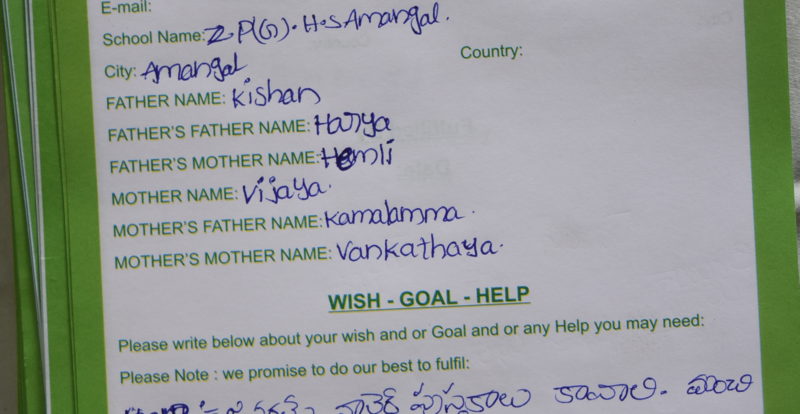 E-mail:
School Name: Z.P(G).H.S Amangal.
City: Amangal Country:
FATHER NAME: Kishan
FATHER'S FATHER NAME: Harya
FATHER'S MOTHER NAME: Hemli
MOTHER NAME: Vijaya.
MOTHER'S FATHER NAME: Kamalamma.
MOTHER'S MOTHER NAME: Vankathaya.
WISH - GOAL - HELP
Please write below about your wish and or Goal and or any Help you may need:
Please Note : we promise to do our best to fulfil:
పుస్తకాలు కావాలి. మంచి